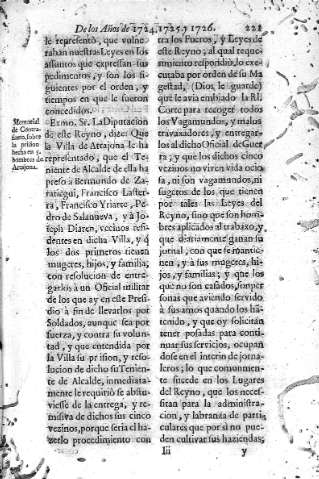 De los Años de 1724, 1725, y 1726. 221
le representò, que vulne-
raban nuestras Leyes en los
assuntos que expressan sus
pedimentos, y son los si-
guientes por el orden, y
tiempos en que le fueron
concedidos.
Memorial
de Contra-
fuero, sobre
la prision
hecha en 5.
hombres de
Artajona.
Exmo. Sr. La Diputacion
de este Reyno, dize: Que
la Villa de Artajona le ha
representado, que el Te-
niente de Alcalde de ella ha
preso à Bermundo de Za-
ratiegui, Francisco Laster-
ra, Francisco Yriarte, Pe-
dro de Salanueva, y à Jo-
seph Diaren, vecinos resi-
dentes en dicha Villa, y q̃
los dos primeros tienen
mugeres, hijos, y familia,
con resolucion de entre-
garlos à un Oficial militar
de los que ay en este Presi-
dio à fin de llevarlos por
Soldados, aunque sea por
fuerza, y contra su volun-
tad, y que entendida por
la Villa su prision, y reso-
lucion de dicho su Tenien-
te de Alcalde, inmediata-
mente le requiriò se abstu-
viesse de la entrega, y re-
missiva de dichos sus cinco
vezinos, porque seria el ha-
zerlo procedimiento con
tra los Fueros, y Leyes de
este Reyno, al qual reque-
rimiento respondiò, lo exe-
cutaba por orden de su Ma-
gestad, (Dios le guarde)
que le avia embiado la Rl.
Corte para recoger todos
los Vagamundos, y malos
travaxadores, y entregar-
los al dicho Oficial de Guer-
ra; y que los dichos cinco
vezinos no viven vida ocio
sa, ni son vagamundos, ni
sugetos de los que tienen
por tales las Leyes del
Reyno, sino que son hom-
bres aplicados al trabaxo, y
que diariamente ganan su
jornal, con que se mantie-
nen, y à sus mugeres, hi-
jos, y familias; y que los
que no son casados, son per
sonas que aviendo servido
à sus amos quando los hã
tenido, y que oy solicitan
tener posadas para conti-
nuar sus servicios, ocupan
dose en el interin de jorna-
leros; lo que comunmen-
te sucede en los Lugares
del Reyno, que los necef-
sitan para la administra-
cion, y labranza de parti-
culares que por si no pue-
den cultivar sus haziendas,
Iii y